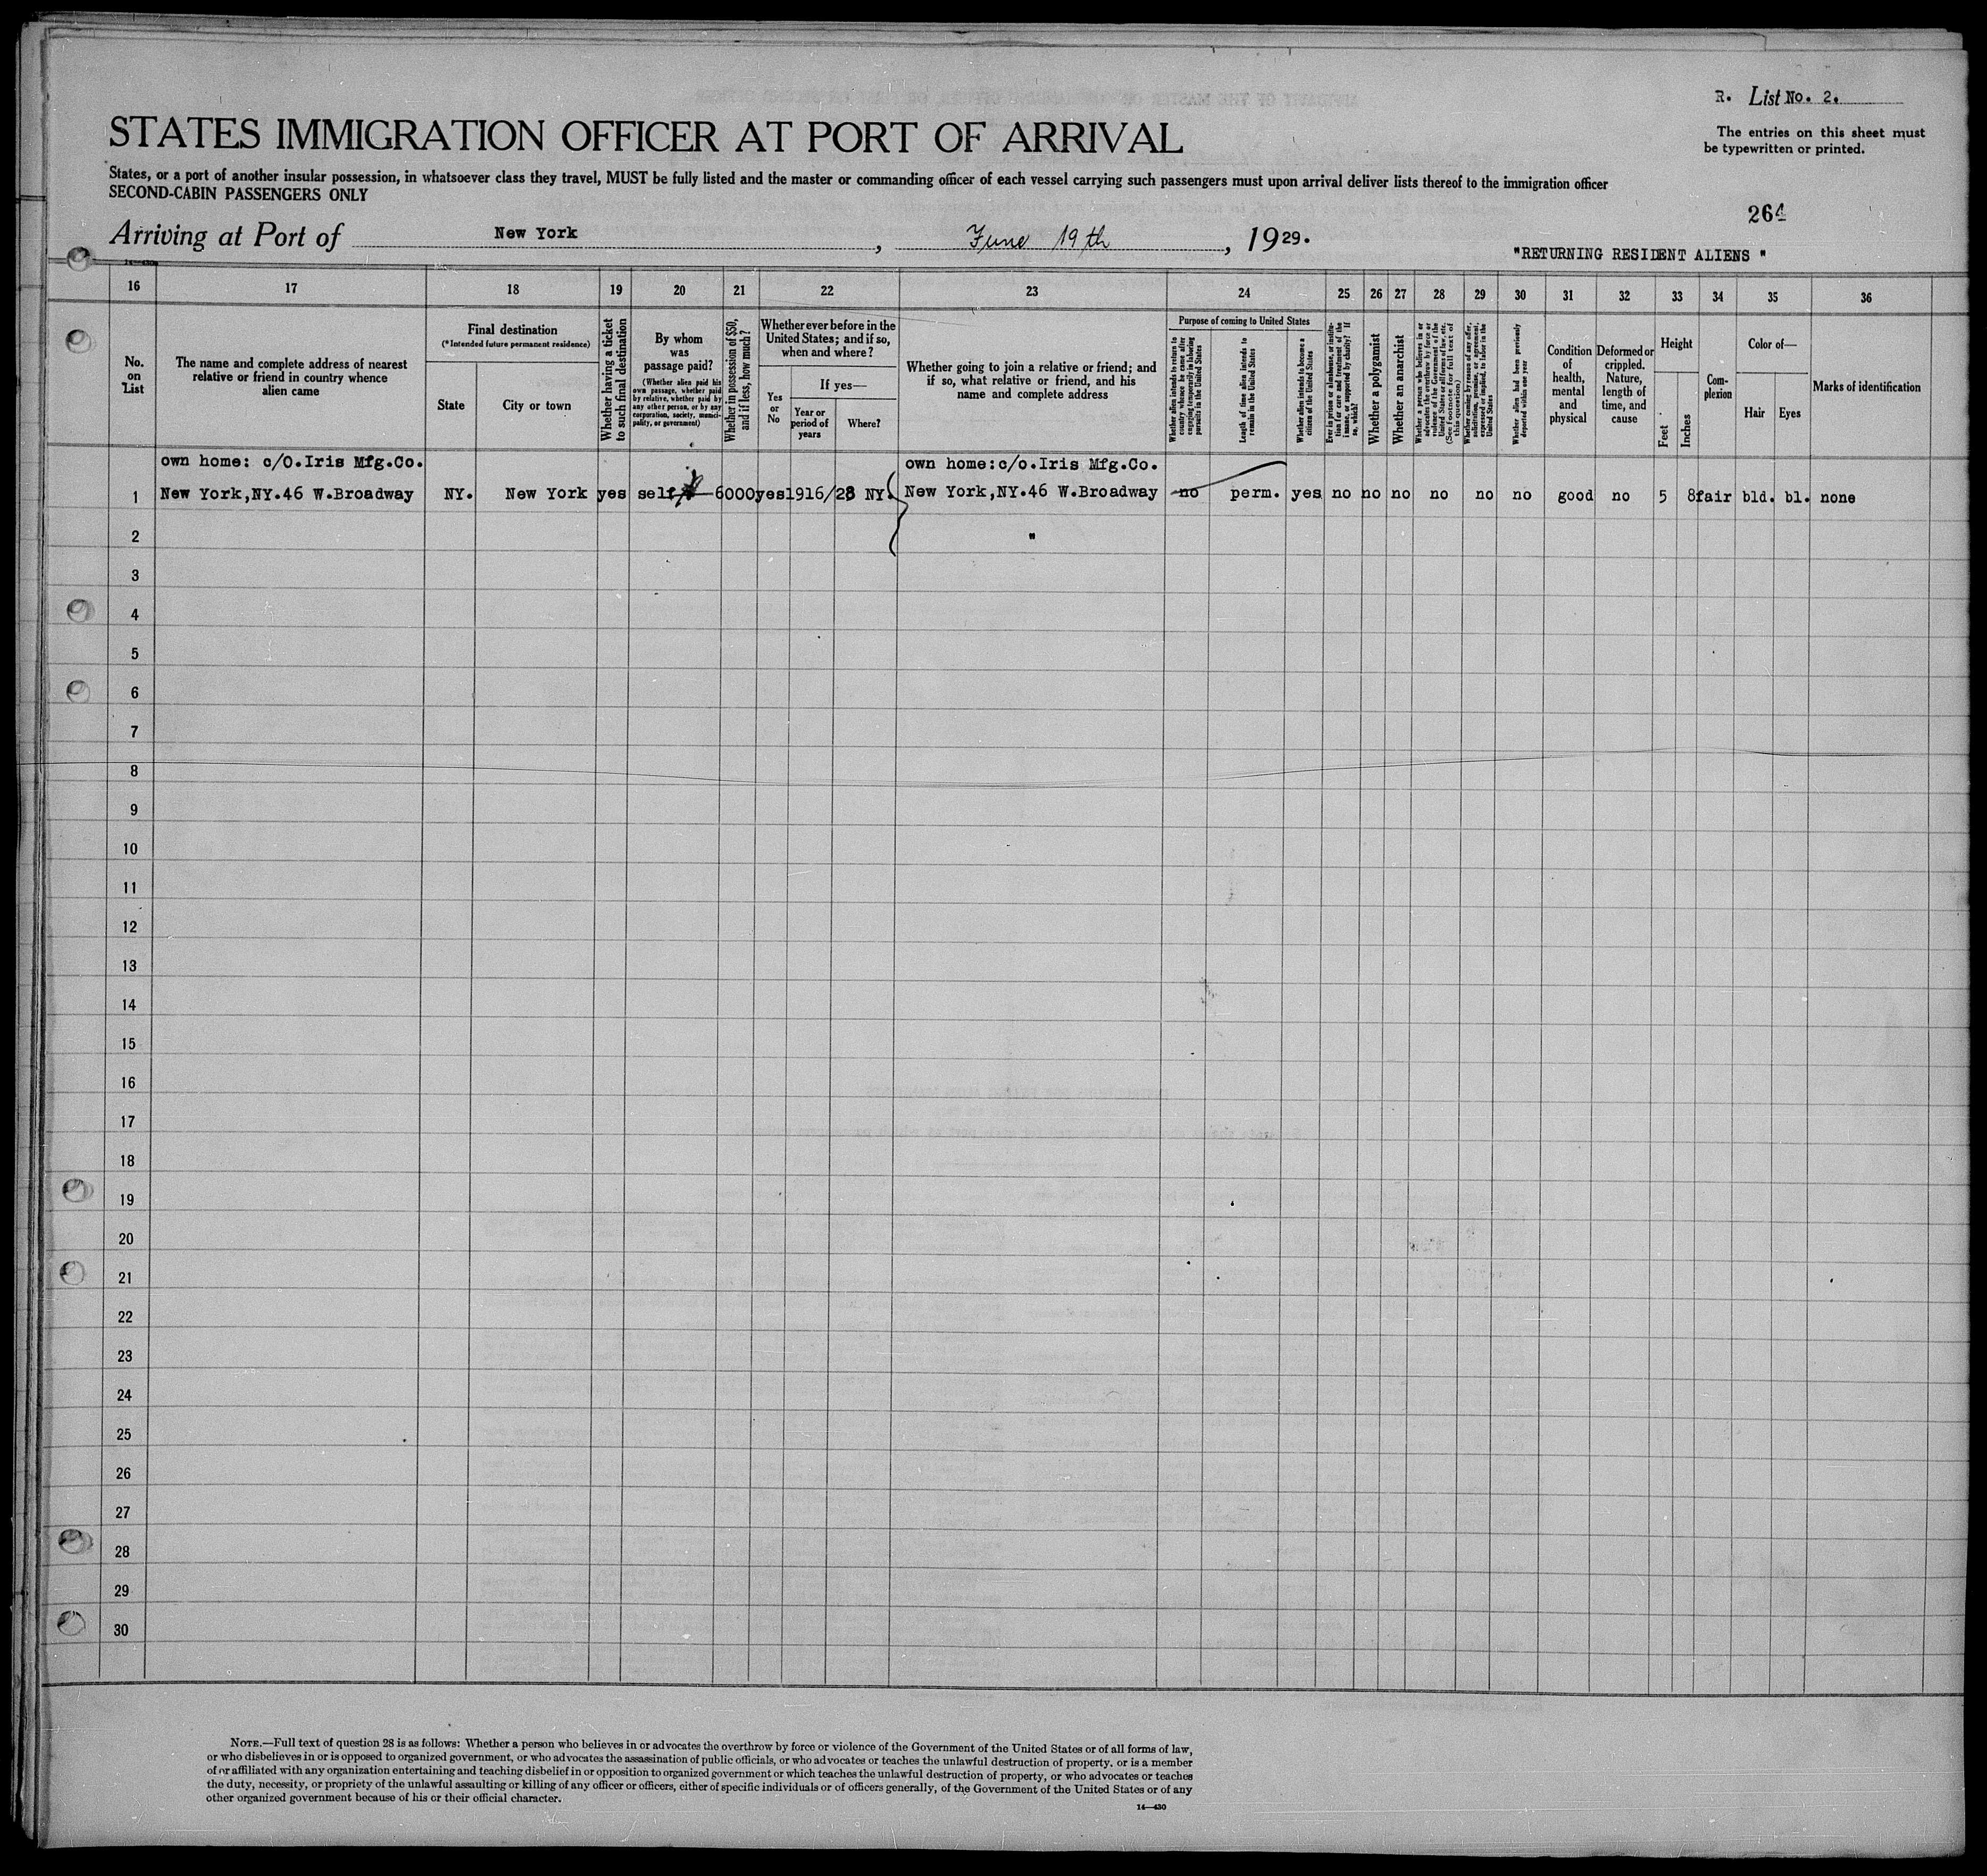 R. List No. 2.
The entries on this sheet must
be typewritten or printed.
STATES IMMIGRATION OFFICER AT PORT OF ARRIVAL
States, or a port of another insular possession, in whatsoever class they travel, MUST be fully listed and the master or commanding officer of each vessel carrying such passengers must upon arrival deliver lists thereof to the immigration officer
SECOND-CABIN PASSENGERS ONLY
264
Arriving at Port of New York, June 19th, 1929.
"RETURNING RESIDENT ALIENS "
16 17 18 19 20 21 22 23 24 25 26 27 28 29 30 31 32 33 34 35 36
No.
on
List
The name and complete address of nearest
relative or friend in country whence
alien came
Final destination
(*Intended future permanent residence)
State
City or town
Whether having a ticket
to such final destination
By whom
was
passage paid?
(Whether alien paid his
own passage, whether paid
by relative, whether paid by
any other person, or by any
corporation, society, munici-
pality, or government)
Whether in possession of $50,
and if less, how much?
Whether ever before in the
United States; and if so,
when and where?
Yes
or
No
If yes—
Year or
period of
years
Where?
Whether going to join a relative or friend; and
if so, what relative or friend, and his
name and complete address
Purpose of coming to United States
Whether alien intends to return to
country whence he came after
engaging temporarily in laboring
pursuits in the United States
Length of time alien intends to
remain in the United States
Whether alien intends to become a
citizen of the United States
Ever in prison or almshouse, or institu-
tion for care and treatment of the
insane, or supported by charity? If
so, which?
Whether a polygamist
Whether an anarchist
Whether a person who believes in or
advocates the overthrow by force or
violence of the Government of the
United States or all forms of law, etc.
(See footnote for full text of
this question)
Whether coming by reason of any offer,
solicitation, promise, or agreement,
expressed or implied, to labor in the
United States
Whether alien had been previously
deported within one year
Condition
of
health,
mental
and
physical
Deformed or
crippled.
Nature,
length of
time, and
cause
Height
Feet
Inches
Com-
plexion
Color of—
Hair
Eyes
Marks of identification
own home: c/O.Iris Mfg.Co. own home:c/o.Iris Mfg.Co.
1 New York,NY.46 W.Broadway NY. New York yes self 6000 yes 1916/28 NY. New York,NY.46 W.Broadway no perm. yes no no no no no no good no 5 8 fair bld. bl. none
2 "
3
4
5
6
7
8
9
10
11
12
13
14
15
16
17
18
19
20
21
22
23
24
25
26
27
28
29
30
NOTE.—Full text of question 28 is as follows: Whether a person who believes in or advocates the overthrow by force or violence of the Government of the United States or of all forms of law,
or who disbelieves in or is opposed to organized government, or who advocates the assassination of public officials, or who advocates or teaches the unlawful destruction of property, or is a member
of or affiliated with any organization entertaining and teaching disbelief in or opposition to organized government or which teaches the unlawful destruction of property, or who advocates or teaches
the duty, necessity, or propriety of the unlawful assaulting or killing of any officer or officers, either of specific individuals or of officers generally, of the Government of the United States or of any
other organized government because of his or their official character.
14—430